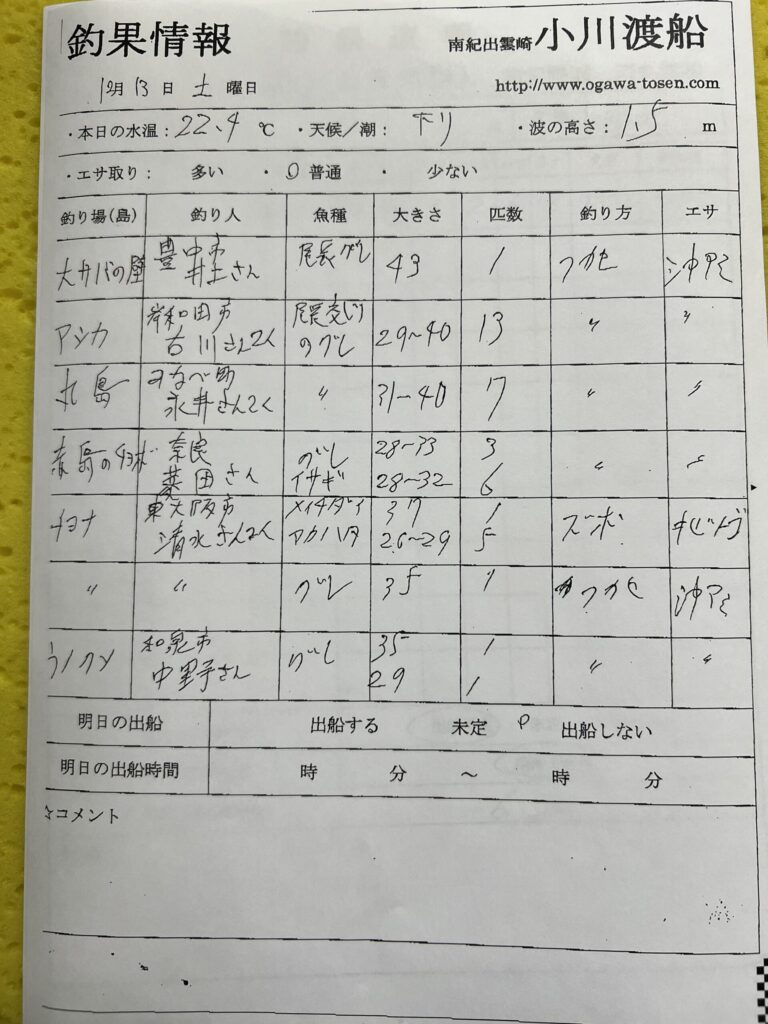 釣果情報 南紀出雲崎 小川渡船
12月 13日 土曜日 http://www.ogawa-tosen.com
・本日の水温：22.4℃ ・天候／潮：下り ・波の高さ：1.5m
・エサ取り： 多い ・ 〇普通 ・ 少ない
釣り場(島) 釣り人 魚種 大きさ 匹数 釣り方 エサ
大サバの壁 豊中市 井上さん 尾長グレ 43 1 フカセ 沖アミ
アシカ 岸和田市 古川さん2人 尾長交じりのグレ 29〜40 13 〃 〃
丸島 みなべ町 永井さん2人 〃 31〜40 7 〃 〃
赤島のチョボ 奈良 菱田さん グレ 28〜33 3 〃 〃
イサギ 28〜32 6
東大阪市 清水さん2人 メイチダイ 37 1 ズボ キビナゴ
アカハタ 26〜29 5
〃 〃 グレ 35 1 フカセ 沖アミ
和泉市 中野さん グレ 35 1 〃 〃
29 1
明日の出船 出船する 未定 〇 出船しない
明日の出船時間 時 分 〜 時 分
☆コメント